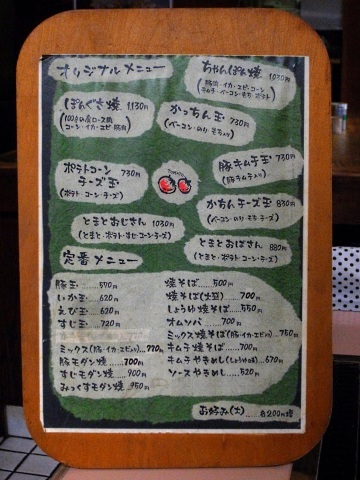 オリジナルメニュー
ちゃんぽん焼 1030円
ぽんぐき焼 1,130円
かっちん玉 730円
(ベーコン・のり・もち入り)
ポテトコーン
チーズ玉 730円
(ポテト・コーン・チーズ)
豚キムチ玉 730円
(豚キムチ入り)
かちんチーズ玉 830円
(ベーコン・のり・もち・チーズ)
とまとおじさん 1030円
(とまと・ポテト・すじ・コーン・チーズ)
とまとおばさん 880円
(とまと・ポテト・コーン・チーズ)
定番メニュー
豚玉 570円
いか玉 620円
えび玉 620円
すじ玉 720円
ミックス(豚・イカ・エビ入り)...770円
豚モダン焼 700円
すじモダン焼 900円
みっくすモダン焼 950円
焼そば 500円
焼そば(大盛) 700円
しょうゆ焼そば 550円
オムソバ 700円
ミックス焼そば(豚・イカ・エビ入り)...750円
キムチ焼そば 700円
キムチやきめし(しょうゆ味)...670円
ソースやきめし 520円
お好み(大) 各200円増